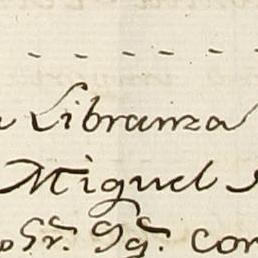 Libranza
Miguel
Sr. Dg. con